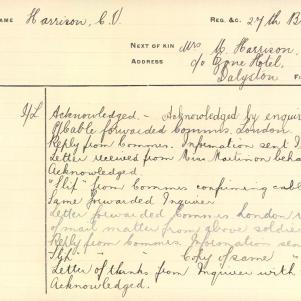 NAME Harrison, C. V. REG. &C. 27th B
NEXT OF KIN Mrs M. Harrison,
ADDRESS c/o Hotel,
Dalyston
I/L Acknowledged. - Acknowledged by enquir
Cable forwarded Commis. London.
Reply from Commis. Information sent I
Letter received from Miss beha
Acknowledged
"Slip" from Commis confirming cabl
Same forwarded Inquirer
Letter forwarded Commis London r
of mail matter from above soldier
Reply from Commis. Information sen
Copy of same "
Letter of thanks from Inquirer with
Acknowledged.